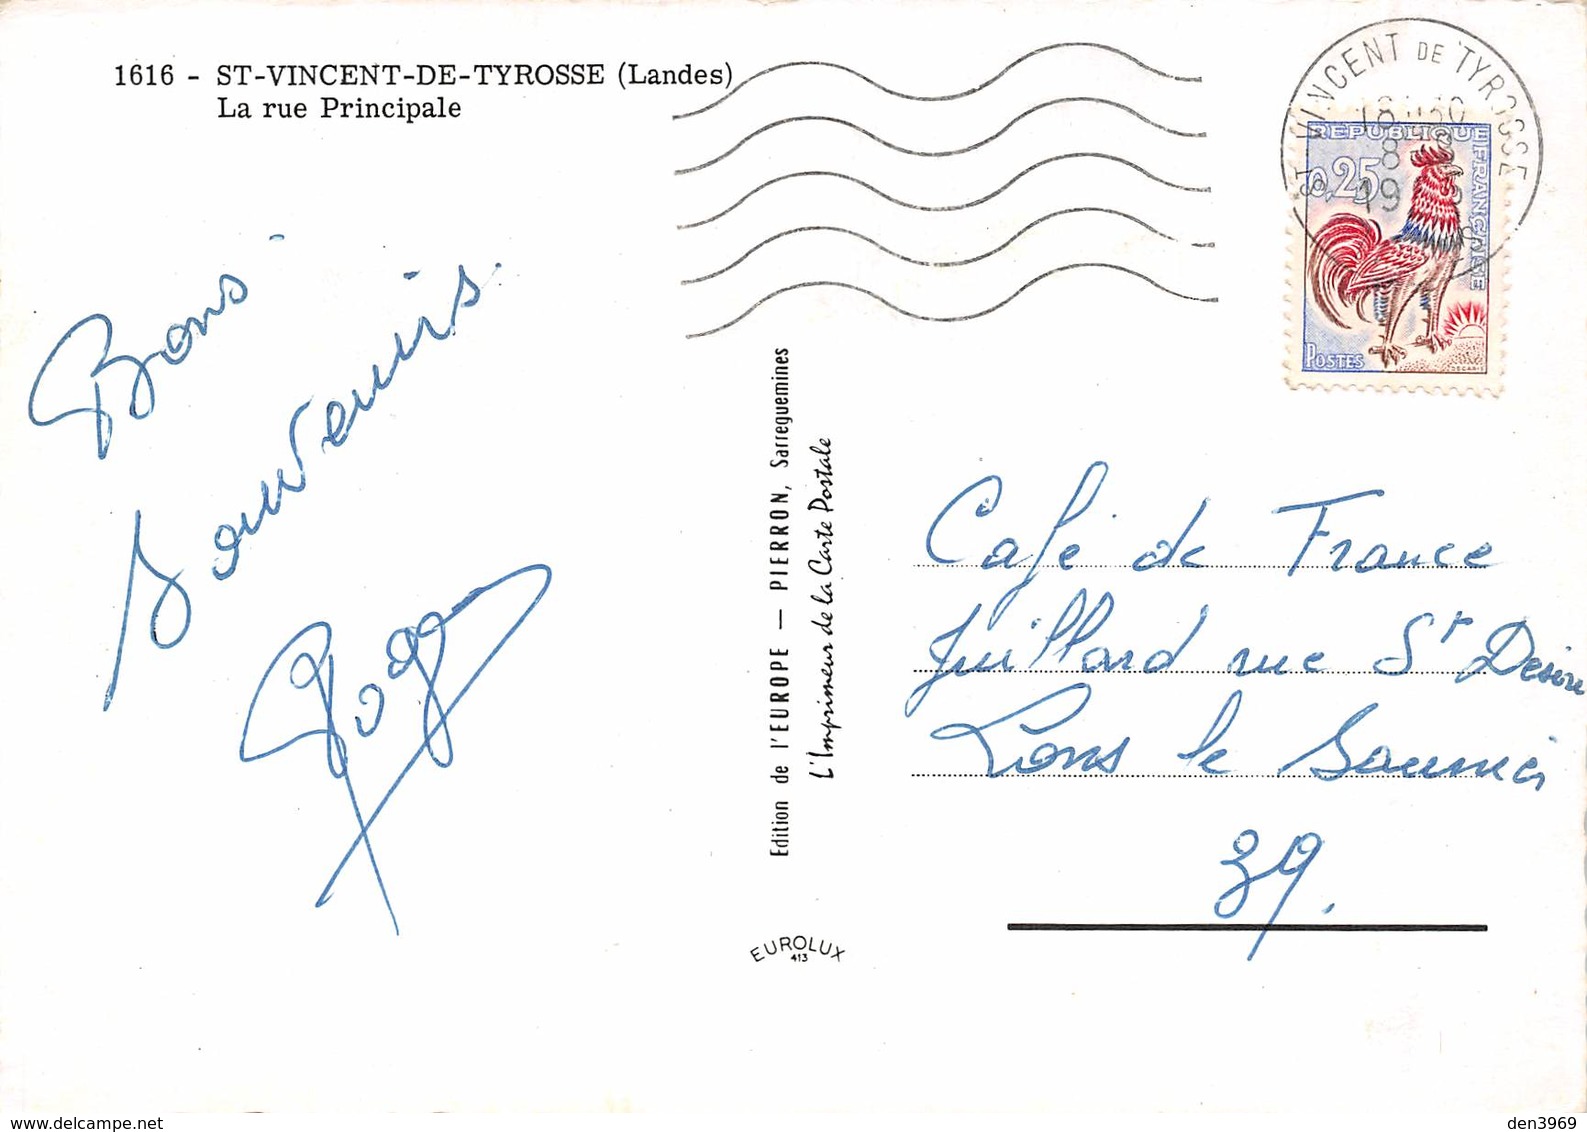 1616 - ST-VINCENT-DE-TYROSSE (Landes)
La rue Principale
Bons
Souvenirs.
Roger
Edition de l'EUROPE — PIERRON, Sarreguemines
L'Imprimeur de la Carte Postale
EUROLUX
413
ST VINCENT DE TYROSSE
8
19
REPUBLIQUE FRANÇAISE
0,25
POSTES
DECARIS
Café de France
Juillard rue St Desiré
Lons le Saunier
39.
delcampe.net
den3969